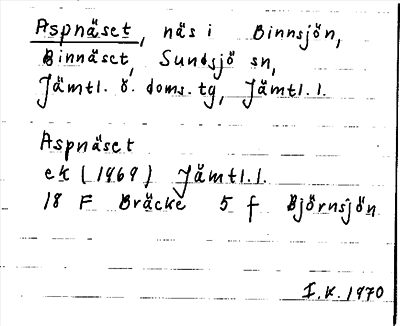 Aspnäset, näs i Binnsjön,
Binnäset, Sundsjö sn,
Jämtl. ö. doms. tg, Jämtl. l.
Aspnäset
ek (1969) Jämtl. l.
18 F Bräcke 5 f Björnsjön
I.K. 1970